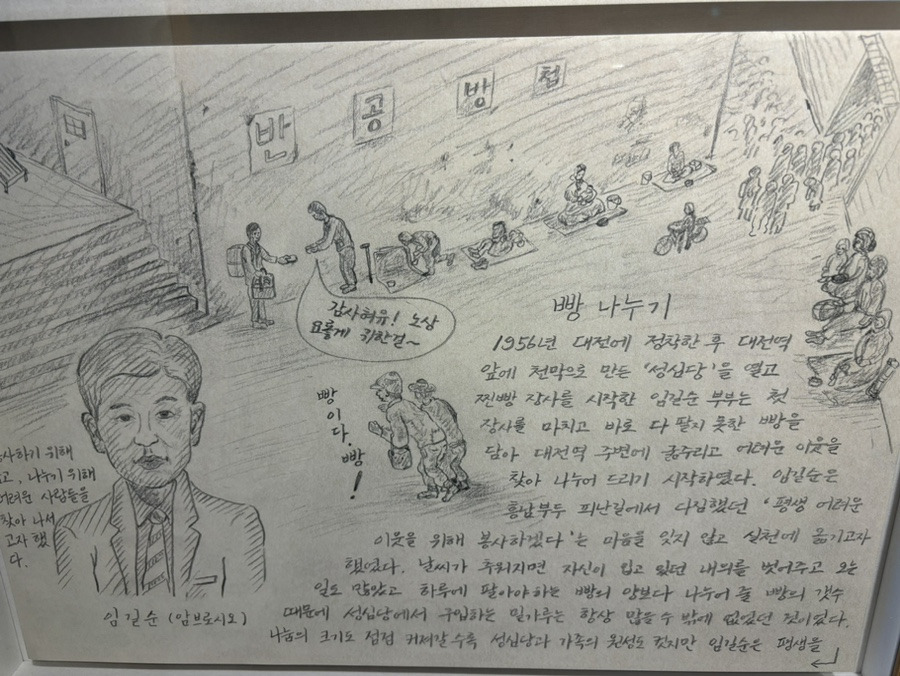 반 공 방 첩
감사혀유! 노상
요롷게 귀한걸~
빵이다, 빵!
빵 나누기
1956년 대전에 정착한 후 대전역
앞에 천막으로 만든 '성심당'을 열고
찐빵 장사를 시작한 임길순 부부는 첫
장사를 마치고 바로 다 팔지 못한 빵을
담아 대전역 주변에 굶주리고 어려운 이웃을
찾아 나누어 드리기 시작하였다. 임길순은
흥남부두 피난길에서 다짐했던 '평생 어려운
이웃을 위해 봉사하겠다'는 마음을 잊지 않고 실천에 옮기고자
했었다. 날씨가 추워지면 자신이 입고 있던 내의를 벗어주고 오는
일도 많았고 하루에 팔아야하는 빵의 양보다 나누어 줄 빵의 갯수
때문에 성심당에서 구입하는 밀가루는 항상 많을 수 밖에 없었던 것이었다.
나눔의 크기도 점점 커져갈수록 성심당과 가족의 원성도 컸지만 임길순은 평생을
사하기 위해
고, 나누기 위해
어려운 사람들을
찾아 나서
고자 했
다.
임길순 (암브로시오)